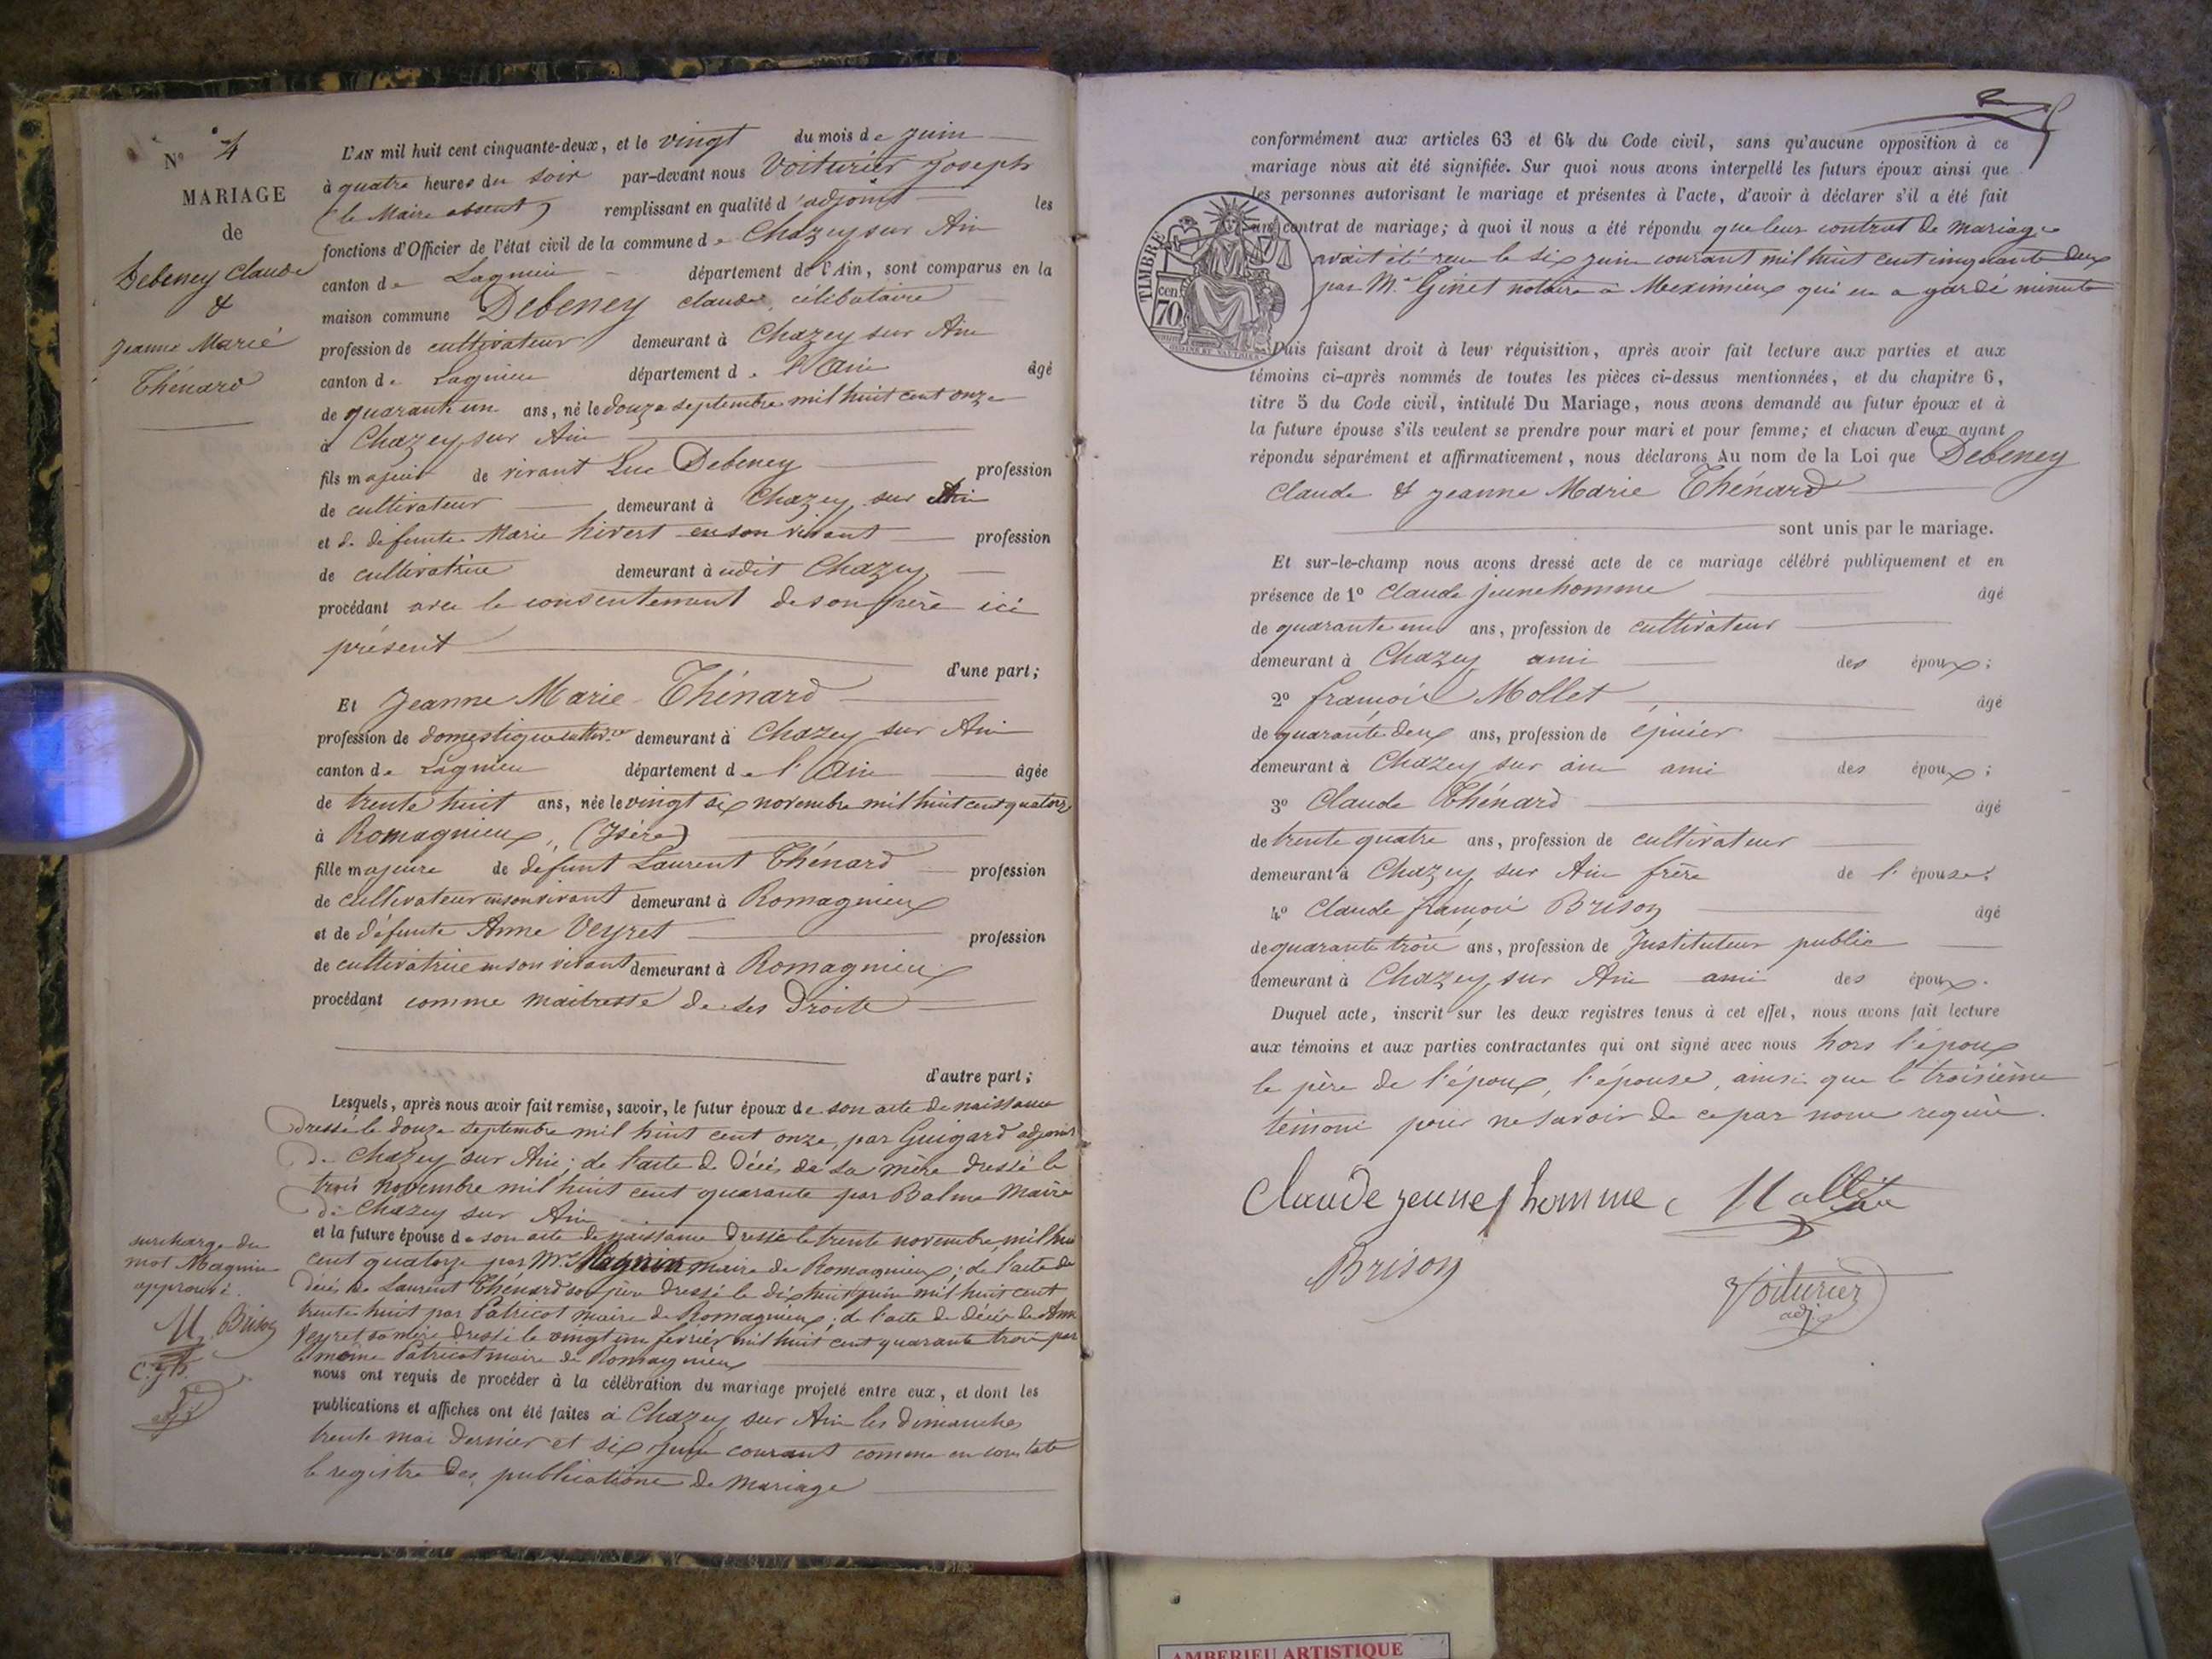 N° 4
MARIAGE
de
Debeney Claude
&
Jeanne Marie
Thénard
L'AN mil huit cent cinquante-deux, et le vingt du mois de juin
à quatre heures du soir par-devant nous Voiturier Joseph
(le Maire absent) remplissant en qualité d'adjoint les
fonctions d'Officier de l'état civil de la commune de Chazey sur Ain
canton de Lagnieu département de l'Ain, sont comparus en la
maison commune Debeney claude célibataire
profession de cultivateur demeurant à Chazey sur Ain
canton de Lagnieu département de l'Ain âgé
de quarante un ans, né le douze septembre mil huit cent onze
à Chazey sur Ain
fils majeur de vivant Luc Debeney profession
de cultivateur demeurant à Chazey sur Ain
et de défunte Marie hivert en son vivant profession
de cultivatrice demeurant à udit Chazey
procédant avec le consentement de son père ici
présent
d'une part;
Et Jeanne Marie Thénard
profession de domestique cultiv.ce demeurant à Chazey sur Ain
canton de Lagnieu département de l'Ain âgée
de trente huit ans, née le vingt six novembre mil huit cent quatorze
à Romagnieux, (Isère)
fille majeure de défunt Laurent Thénard profession
de cultivateur en son vivant demeurant à Romagnieux
et de défunte Anne Veyret profession
de cultivatrice en son vivant demeurant à Romagnieux
procédant comme maitresse de ses droits
d'autre part;
Lesquels, après nous avoir fait remise, savoir, le futur époux de son acte de naissance
dressé le douze septembre mil huit cent onze, par Guigard adjoint
de Chazey sur Ain; de l'acte de décès de sa mère dressé le
trois novembre mil huit cent quarante par Balme Maire
de Chazey sur Ain
et la future épouse de son acte de naissance dressé le trente novembre mil huit
cent quatorze par Mr. Magnin maire de Romagnieux; de l'acte de
décès de Laurent Thénard son père dressé le dix huit juin mil huit cent
trente huit par Patricot maire de Romagnieux; de l'acte de décès de Anne
Veyret sa mère dressé le vingt un février mil huit cent quarante trois par
le même Patricot maire de Romagnieux
nous ont requis de procéder à la célébration du mariage projeté entre eux, et dont les
publications et affiches ont été faites à Chazey sur Ain les dimanches
trente mai dernier et six juin courant comme en constate
le registre des publications de mariage
surcharge du
mot Magnin
approuvé.
M Brison
C.J.h.
conformément aux articles 63 et 64 du Code civil, sans qu'aucune opposition à ce
mariage nous ait été signifiée. Sur quoi nous avons interpellé les futurs époux ainsi que
les personnes autorisant le mariage et présentes à l'acte, d'avoir à déclarer s'il a été fait
un contrat de mariage; à quoi il nous a été répondu que leur contrat de mariage
avait été reçu le six juin courant mil huit cent cinquante deux
par Me Ginet notaire à Meximieux qui en a gardé minute
TIMBRE
cen
70
Puis faisant droit à leur réquisition, après avoir fait lecture aux parties et aux
témoins ci-après nommés de toutes les pièces ci-dessus mentionnées, et du chapitre 6,
titre 5 du Code civil, intitulé Du Mariage, nous avons demandé au futur époux et à
la future épouse s'ils veulent se prendre pour mari et pour femme; et chacun d'eux ayant
répondu séparément et affirmativement, nous déclarons Au nom de la Loi que Debeney
Claude & Jeanne Marie Thénard
sont unis par le mariage.
Et sur-le-champ nous avons dressé acte de ce mariage célébré publiquement et en
présence de 1° Claude jeunehomme âgé
de quarante un ans, profession de cultivateur
demeurant à Chazey ami des époux;
2° françois Mollet âgé
de quarante deux ans, profession de épicier
demeurant à Chazey sur ain ami des époux;
3° Claude Thénard âgé
de trente quatre ans, profession de cultivateur
demeurant à Chazey sur Ain frère de l'épouse;
4° Claude françois Brison âgé
de quarante trois ans, profession de Instituteur public
demeurant à Chazey sur Ain ami des époux.
Duquel acte, inscrit sur les deux registres tenus à cet effet, nous avons fait lecture
aux témoins et aux parties contractantes qui ont signé avec nous hors l'époux
le père de l'époux, l'épouse, ainsi que le troisième
témoin pour ne savoir de ce par nous requis.
Claude jeune homme Mollet
Brison
Voiturier
adj.
AMBERIEU ARTISTIQUE